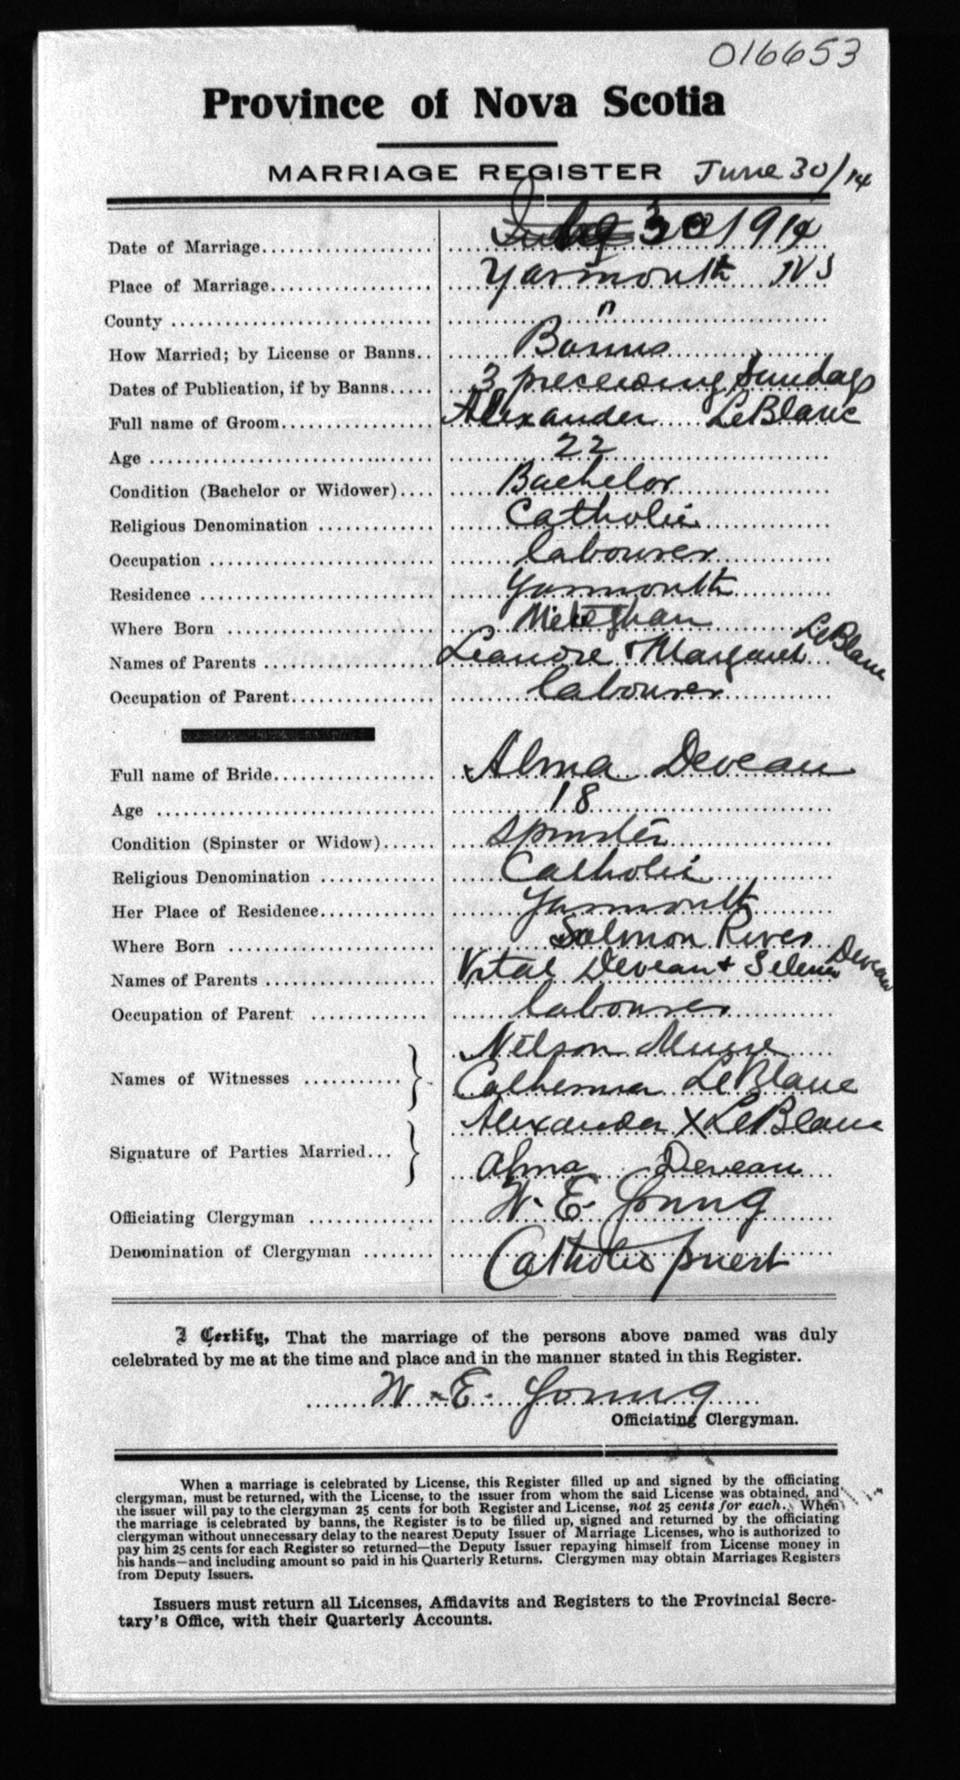 016653
Province of Nova Scotia
MARRIAGE REGISTER June 30/14
Date of Marriage 30 1914
Place of Marriage Yarmouth NS
County "
How Married; by License or Banns Banns
Dates of Publication, if by Banns 3 preceding Sundays
Full name of Groom Alexander LeBlanc
Age 22
Condition (Bachelor or Widower) Bachelor
Religious Denomination Catholic
Occupation labourer
Residence Yarmouth
Where Born Meteghan
Names of Parents Leandre + Margaret LeBlanc
Occupation of Parent labourer
Full name of Bride Alma Deveau
Age 18
Condition (Spinster or Widow) Spinster
Religious Denomination Catholic
Her Place of Residence Yarmouth
Where Born Salmon River
Names of Parents Vital Deveau + Selena Deveau
Occupation of Parent labourer
Names of Witnesses Nelson Muise
Catherine LeBlanc
Signature of Parties Married Alexander X LeBlanc
Alma Deveau
Officiating Clergyman W. E. Young
Denomination of Clergyman Catholic priest
I Certify, That the marriage of the persons above named was duly
celebrated by me at the time and place and in the manner stated in this Register.
W. E. Young
Officiating Clergyman.
When a marriage is celebrated by License, this Register filled up and signed by the officiating
clergyman, must be returned, with the License, to the issuer from whom the said License was obtained, and
the issuer will pay to the clergyman 25 cents for both Register and License, not 25 cents for each. When
the marriage is celebrated by banns, the Register is to be filled up, signed and returned by the officiating
clergyman without unnecessary delay to the nearest Deputy Issuer of Marriage Licenses, who is authorized to
pay him 25 cents for each Register so returned—the Deputy Issuer repaying himself from License money in
his hands—and including amount so paid in his Quarterly Returns. Clergymen may obtain Marriages Registers
from Deputy Issuers.
Issuers must return all Licenses, Affidavits and Registers to the Provincial Secre-
tary's Office, with their Quarterly Accounts.